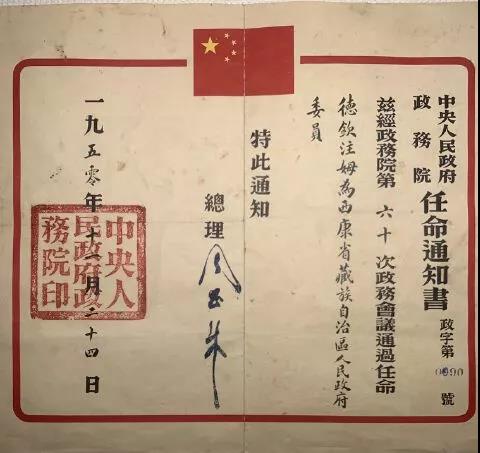 中央人民政府
政務院
任命通知書
政字第0090號
茲經政務院第六十次政務會議通過任命
德欽注姆為西康省藏族自治區人民政府
委員
特此通知
總理
周恩来
一九五零年十一月二十四日
中央人民政府政務院印